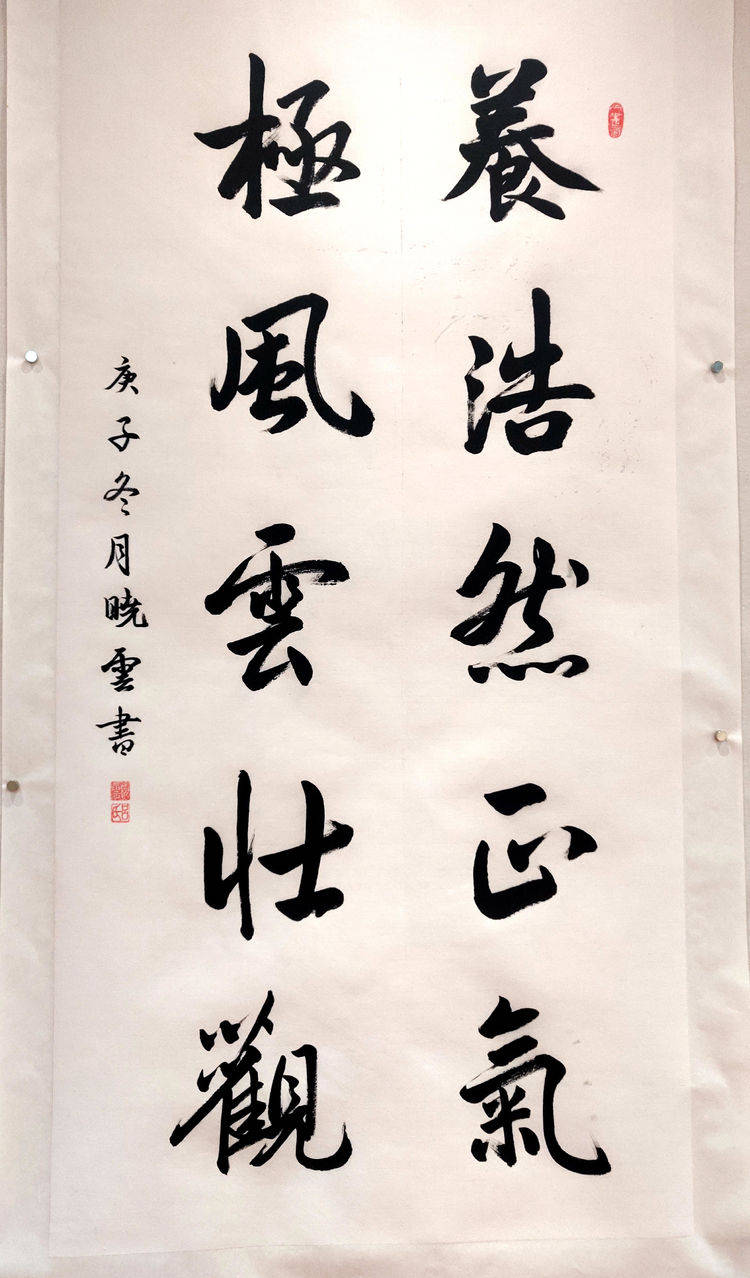 養浩然正氣
極風雲壯觀
庚子冬月曉雲書